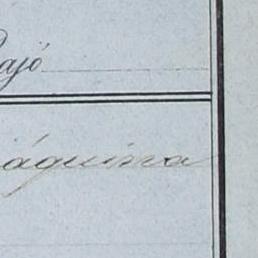 ajó
áquina